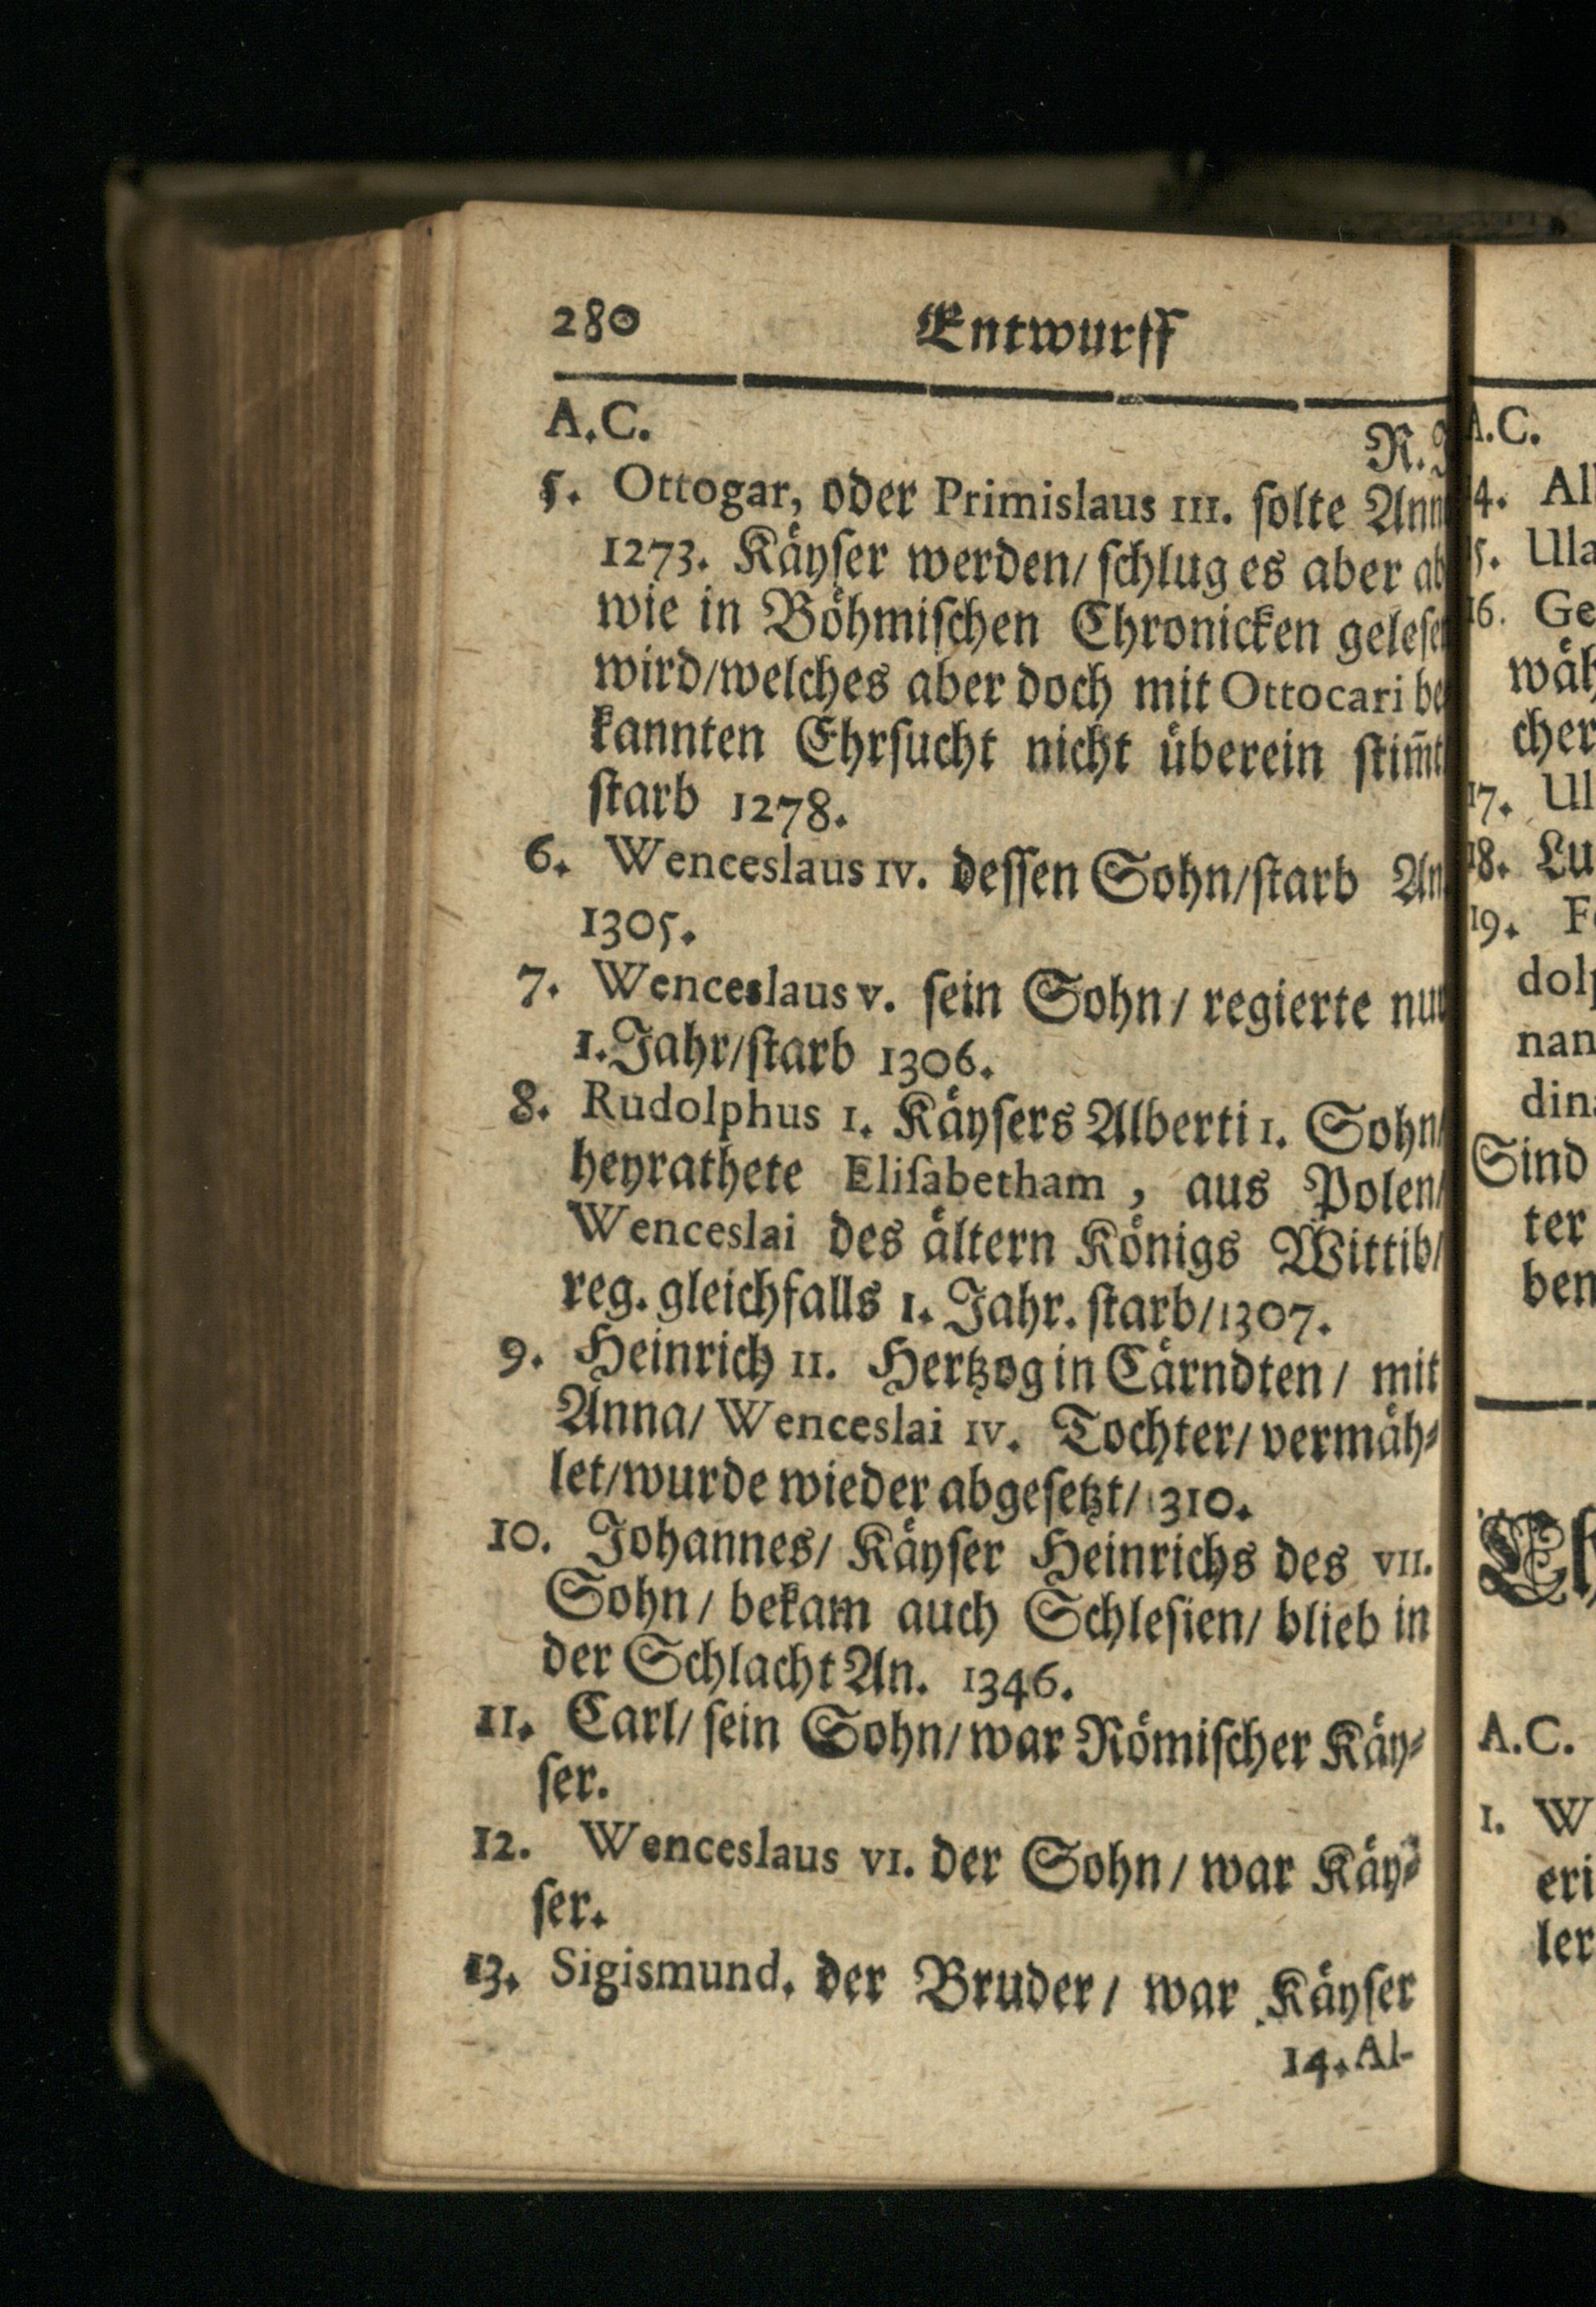 280 Entwurff
A.C.
R.
5. Ottogar, oder Primislaus III. ſolte Ann
1273. Käyſer werden/ ſchlug es aber ab
wie in Böhmiſchen Chronicken geleſen
wird/welches aber doch mit Ottocari be
kannten Ehrſucht nicht überein ſtim̃t
ſtarb 1278.
6. Wenceslaus IV. deſſen Sohn/ſtarb An.
1305.
7. Wenceslaus V. ſein Sohn/ regierte nur
1. Jahr/ſtarb 1306.
8. Rudolphus I. Käyſers Alberti I. Sohn/
heyrathete Eliſabetham, aus Polen/
Wenceslai des ältern Königs Wittib/
reg. gleichfalls 1. Jahr. ſtarb/1307.
9. Heinrich II. Hertzog in Cärndten/ mit
Anna/ Wenceslai IV. Tochter/ vermäh⸗
let/wurde wieder abgeſetzt/1310.
10. Johannes/ Käyſer Heinrichs des VII.
Sohn/ bekam auch Schleſien/ blieb in
der Schlacht An. 1346.
11. Carl/ ſein Sohn/ war Römiſcher Käy⸗
ſer.
12. Wenceslaus VI. der Sohn/ war Käy⸗
ſer.
13. Sigismund. der Bruder/ war Käyſer
14. Al-
A.C.
14. Al
15. Ula
16. Ge
wäh
cher
17. Ul
18. Lu
19. Fe
dolp
nan
din
Sind
ter
ben
A.C.
1. W
eri
ler